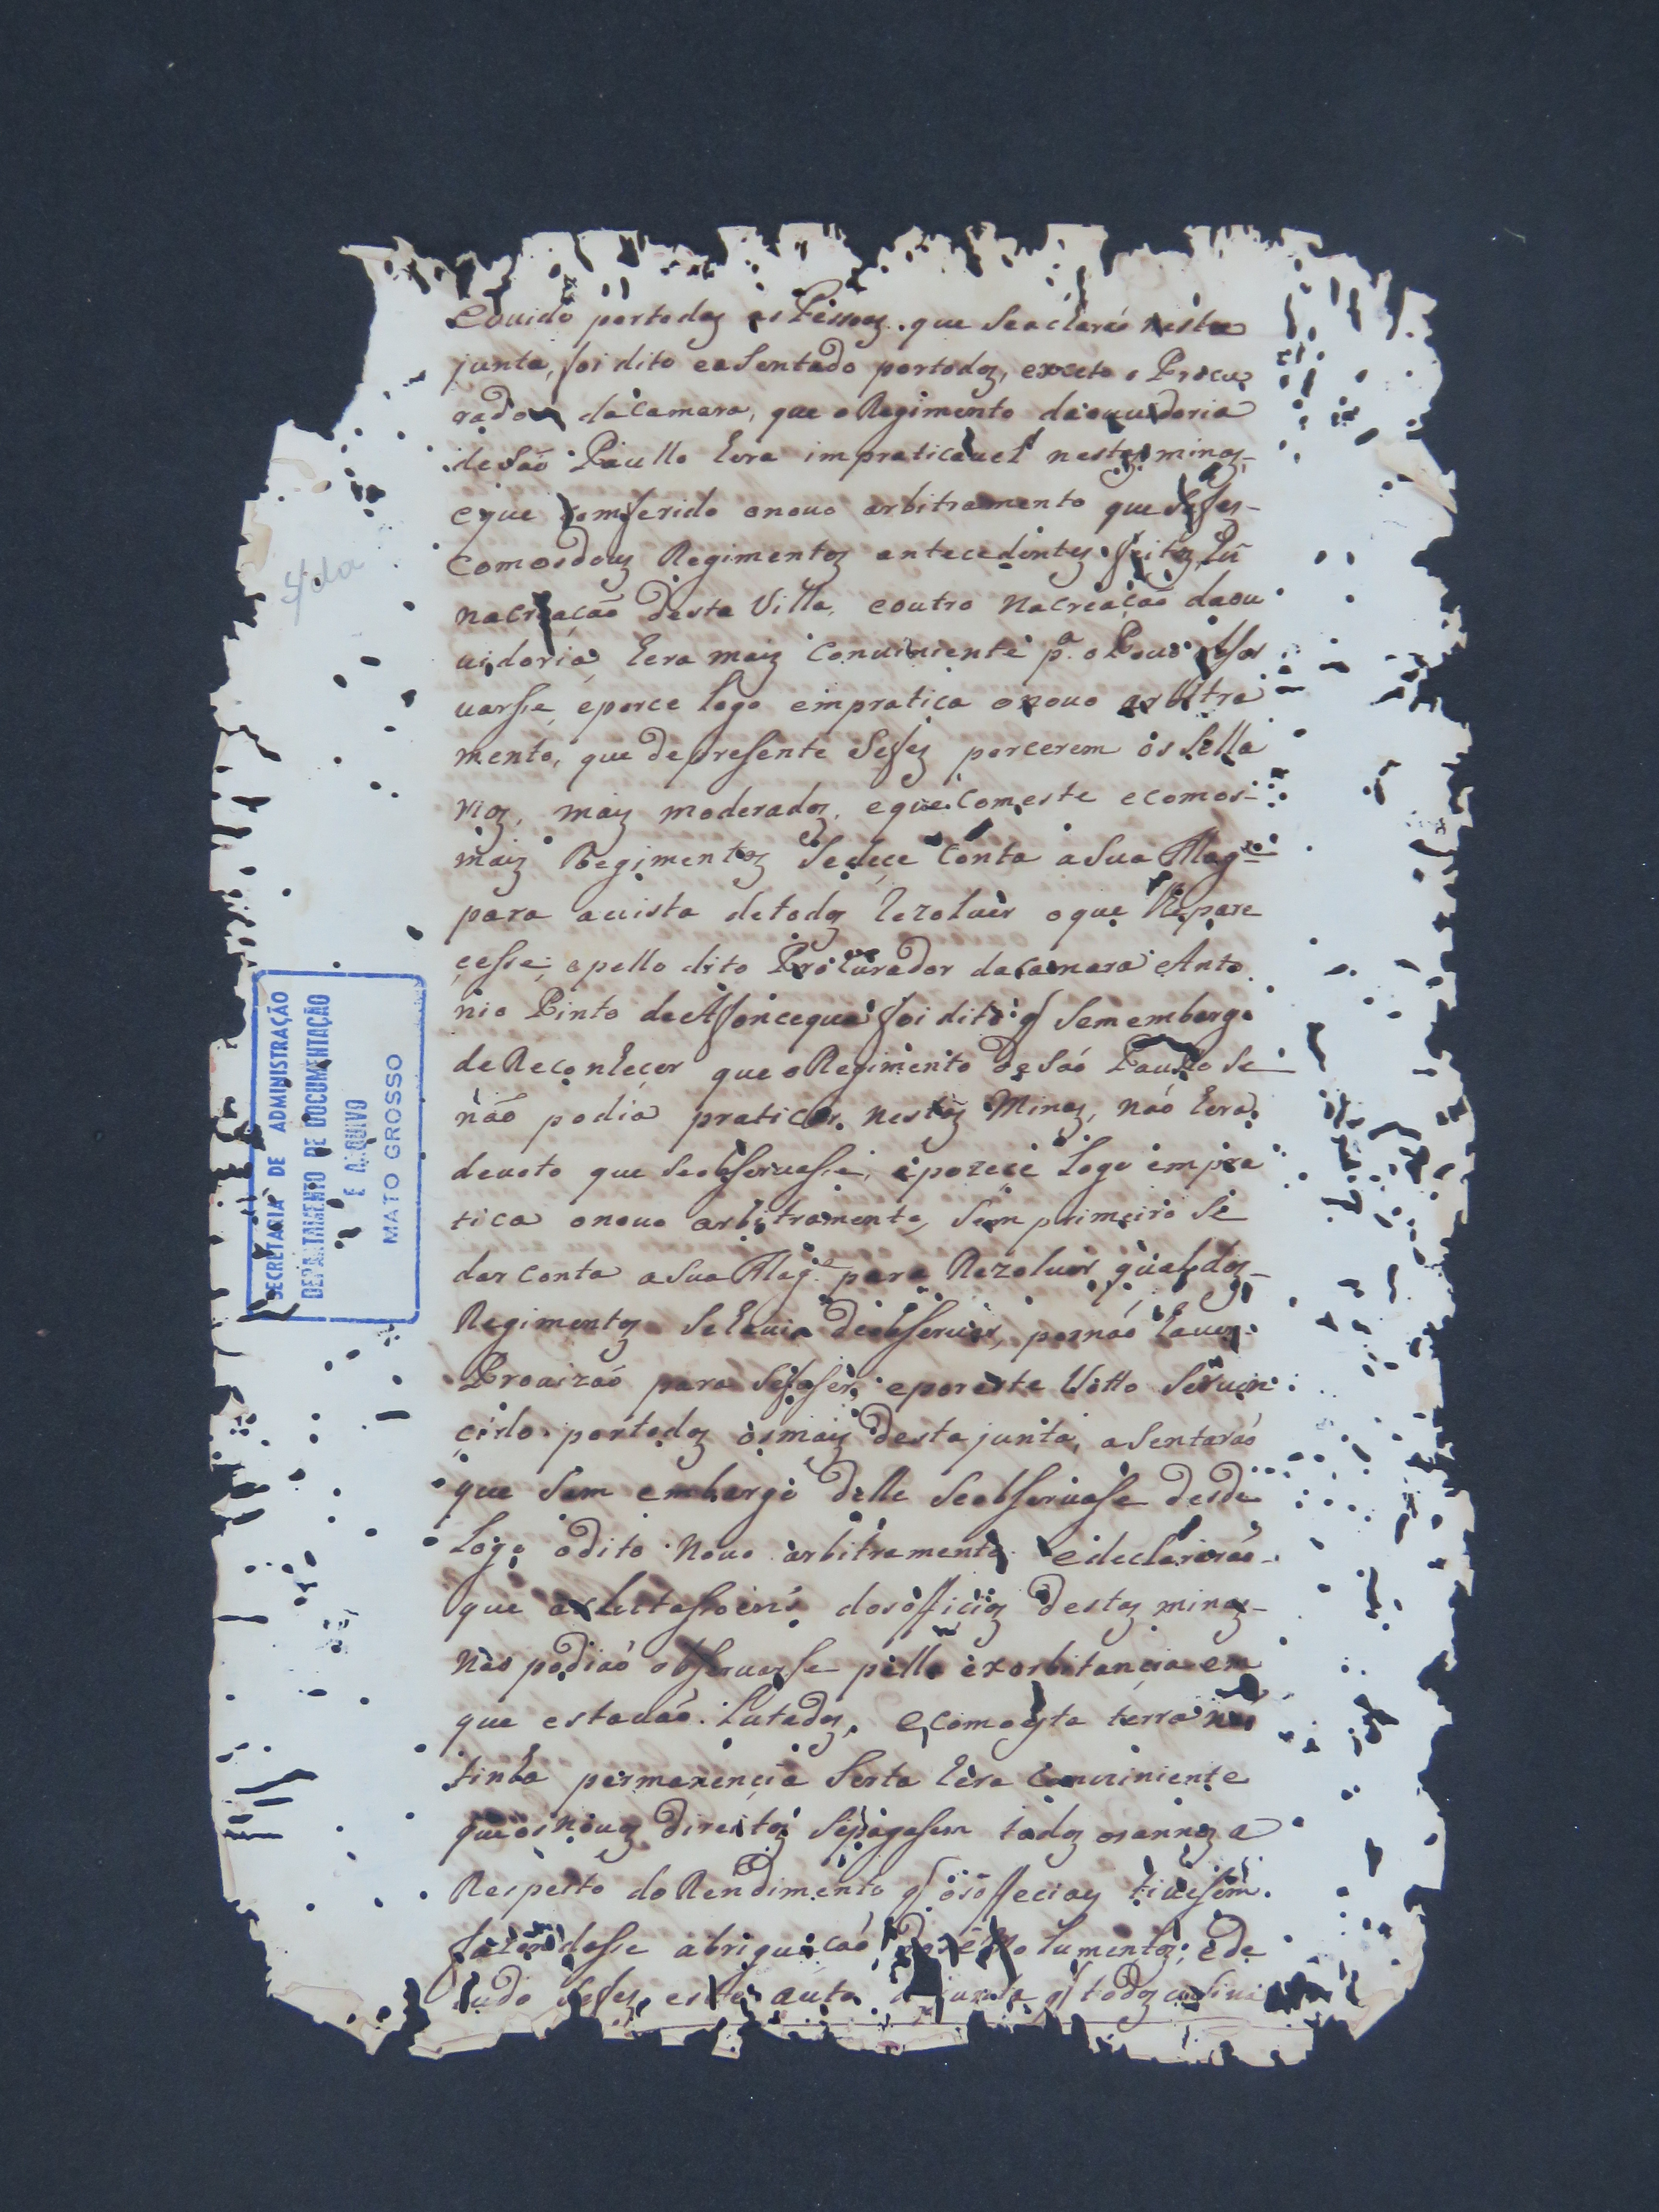 eouido portodas as Pessoas que se acharaó nesta
junta, foi dito easentado portodos, exceto o Procu
rador dacamara, que o Regimento daouuidoria
de Saó Paullo hera impraticauel nestas minas,
eque Comferido onouo arbitramento que sefes
comosdous Regimentos antecedentes feitos, hũ
nacriaçaó desta Villa, eoutro Nacriaçaó daou
uidoria, hera mais conuiniente p.ª o Pouo obser
uarsse, eporce logo empratica onouo arbitra
mento, que depresente sefes porcerem os sella
rios, mais moderados, eque comeste ecomos
mais Regimentos sedece conta aSua Mag.de
para auista detodos Rezoluer oque lhe pare
cesse, epello dito Procurador dacamara Anto
nio Pinto da Fonceque foi dito q̃ sem embargo
de Reconhecer que o Regimento de Saó Paullo se
não podia praticar nestas Minas, naó hera
deuoto que seobseruasse, eporece logo empra
tica onouo arbitramento, sem primeiro se
dar conta aSua Mag.e para Rezoluer qual dos
Regimentos sehauia deobseruar, pornaó hauer
Prouizaó para sefaser, eporeste Votto seruen
cido portodos osmais desta junta, asentaraó
que sem embargo delle seobseruase desde
logo odito Nouo arbitramento, edeclararaó
que aslutassoens dosofficios destas minas
Naó podiaó obseruarse pella exorbitancia em
que estauaó lutados, ecomoesta terra naó
tinha permanençia serta hera conuiniente
queosnouos direitos sepagasem todos osannos a
Respeito do Rendimento q̃ osoffecios tiuesem.
fazendosse abriguaçaó dosemolumentos; ede
tudo sefes este auto dejunta q̃ todos asina
SECRETARIA DE ADMINISTRAÇÃO
DEPARTAMENTO DE DOCUMENTAÇÃO
E ARQUIVO
MATO GROSSO